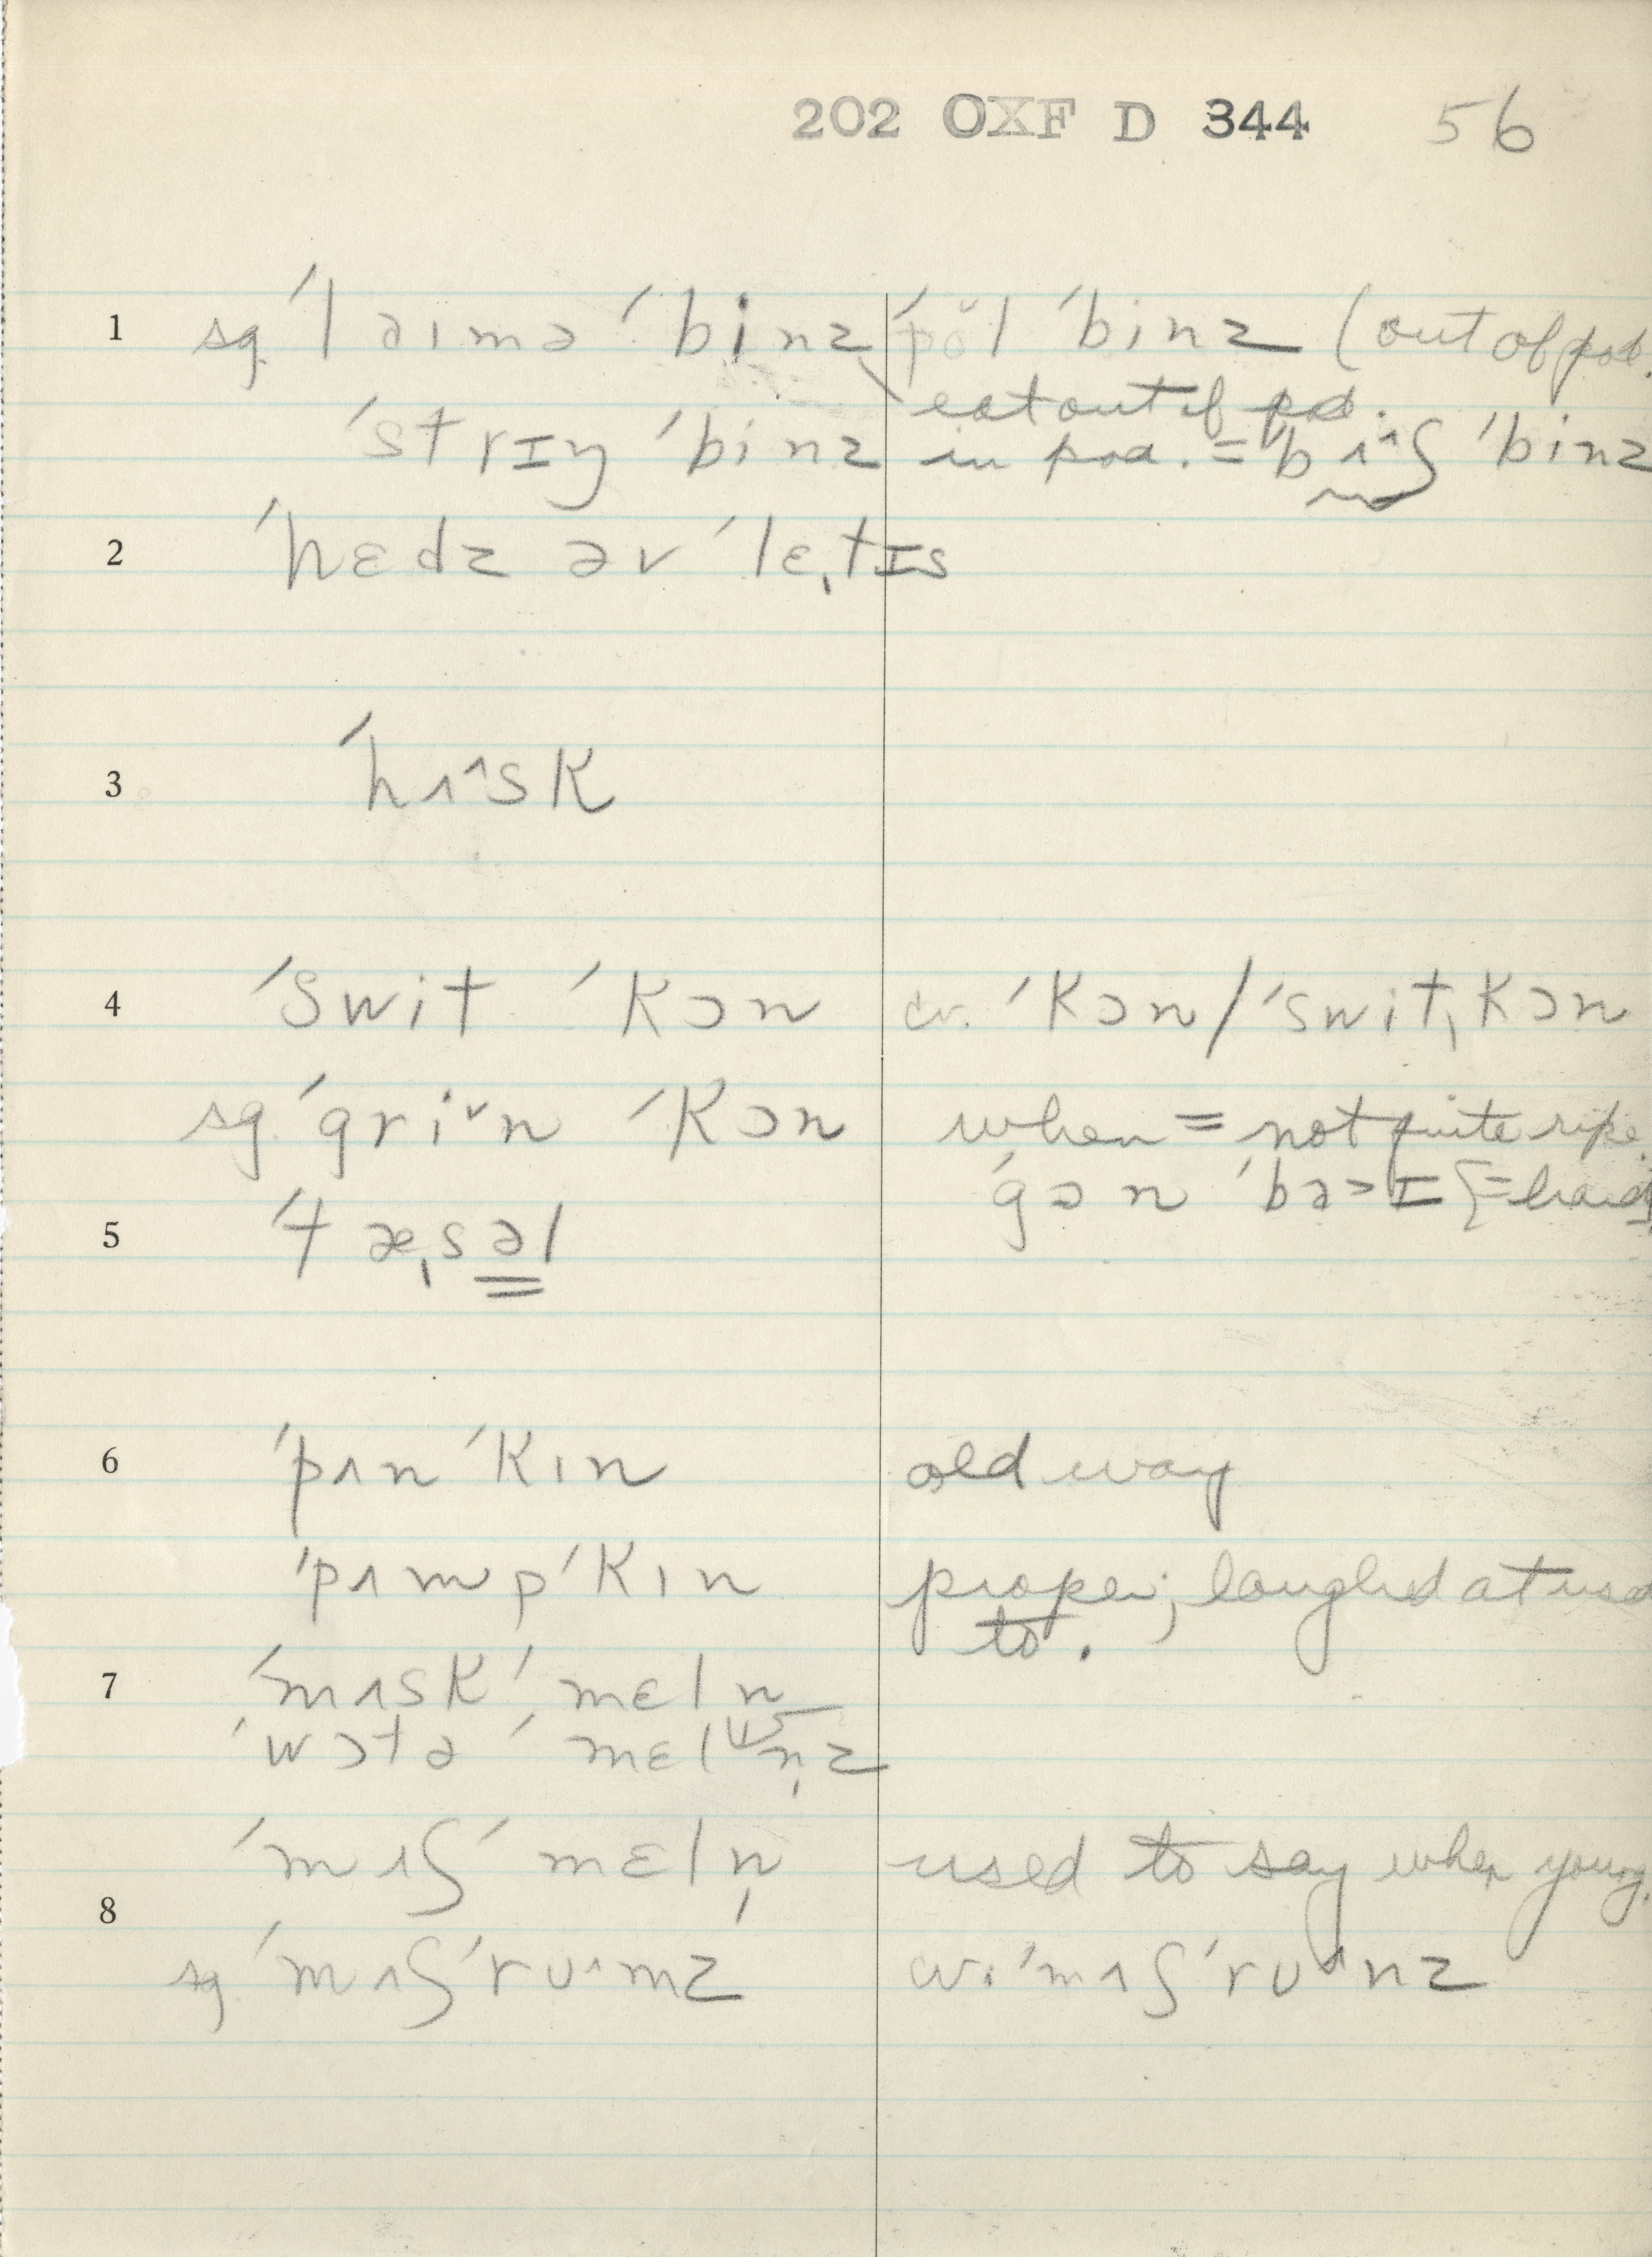 202 OXF D 344 56
1 sg. ˈlaɪmə ˈbinz ˈpǒl ˈbinz (out of pod.
eat out of pod.
ˈstrɪŋ ˈbinz in pod. = ˈbʌ^ʃ ˈbinz
2 ˈhɛdz əv ˈlɛˌtɪs
3 ˈhʌ^sk
4 ˈswit ˈkɔn cv. ˈkɔn / ˈswitˌkɔn
sg. ˈgriˇn ˈkɔn when = not quite ripe.
5 ˈtæˌsəl
6 ˈpʌn ˈkɪn old way
ˈpʌmp ˈkɪn proper; laughed at used
to.
7 ˈmʌsk ˈmɛln
ˈwɔtə ˈmɛln̩z
ˈmʌʃ ˈmɛln̩ used to say when young.
8 sg. ˈmʌʃ ˈrʊ^mz cv. ˈmʌʃ ˈrʊ^nz